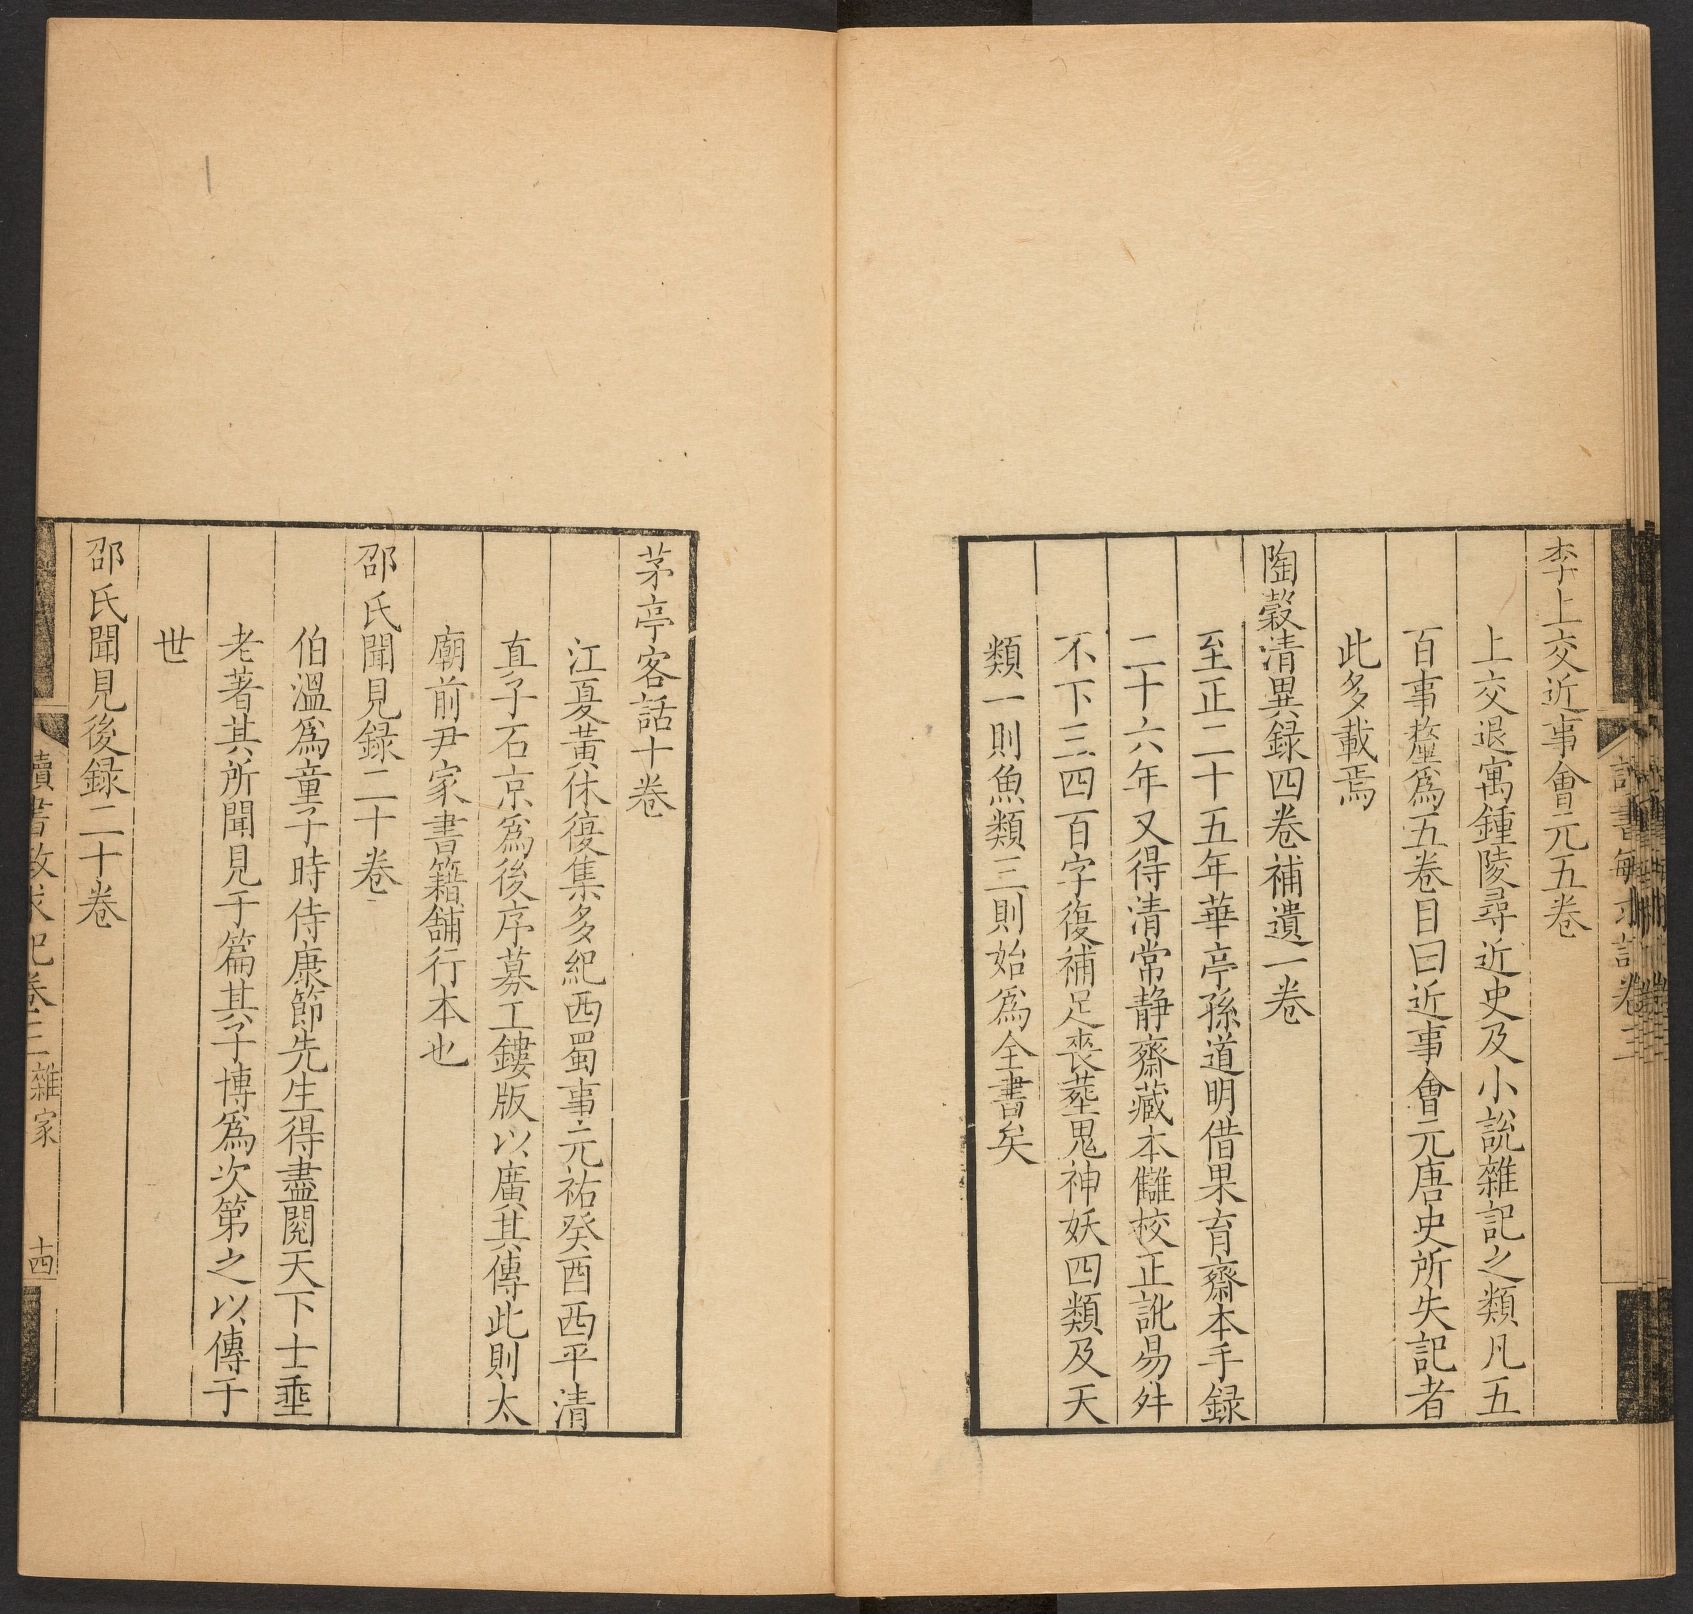 李上交近事會元五卷
上交退寓鍾陵尋近史及小說雜記之類凡五
百事釐爲五卷目曰近事會元唐史所失記者
此多載焉
陶穀清異録四卷補遺一卷
至正二十五年華亭孫道明借果育齋本手録
二十六年又得清常靜齋藏本讎校正訛易舛
不下三四百字復補足喪葬鬼神妖四類及天
類一則魚類三則始爲全書矣
茅亭客話十卷
江夏黃休復集多紀西蜀事元祐癸酉西平清
直子石京爲後序募工鏤版以廣其傳此則太
廟前尹家書籍舖行本也
邵氏聞見録二十卷
伯溫爲童子時侍康節先生得盡閱天下士垂
老著其所聞見于篇其子博爲次第之以傳于
世
邵氏聞見後録二十卷
讀書敏求記卷三 雜家 十四